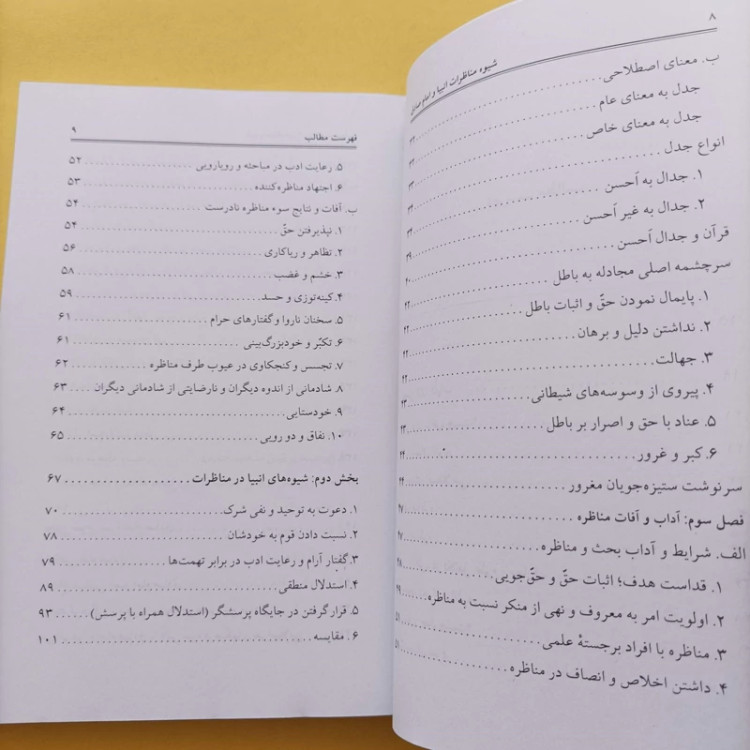 ۸
شیوه مناظرات انبیا و امام صادق
ب. معنای اصطلاحی
جدل به معنای عام
جدل به معنای خاص ۲۳
انواع جدل ۲۴
۱. جدال به اَحسن ۲۴
۲. جدال به غیر اَحسن
قرآن و جدال اَحسن
سرچشمه اصلی مجادله به باطل ۴۰
۱. پایمال نمودن حقّ و اثبات باطل ۴۲
۲. نداشتن دلیل و برهان ۴۲
۳. جهالت ۴۲
۴. پیروی از وسوسه‌های شیطانی ۴۳
۵. عناد با حق و اصرار بر باطل ۴۳
۶. کبر و غرور ۴۴
سرنوشت ستیزه‌جویان مغرور ۴۴
فصل سوم: آداب و آفات مناظره ۴۷
الف. شرایط و آداب بحث و مناظره ۴۷
۱. قداست هدف؛ اثبات حقّ و حقّ‌جویی ۴۸
۲. اولویت امر به معروف و نهی از منکر نسبت به مناظره ۴۹
۳. مناظره با افراد برجستهٔ علمی ۵۱
۴. داشتن اخلاص و انصاف در مناظره ۵۱
فهرست مطالب ۹
۵. رعایت ادب در مباحثه و رویارویی ۵۲
۶. اجتهاد مناظره‌کننده ۵۳
ب. آفات و نتایج سوء مناظره نادرست ۵۴
۱. نپذیرفتن حقّ ۵۴
۲. تظاهر و ریاکاری ۵۶
۳. خشم و غضب ۵۸
۴. کینه‌توزی و حسد ۵۹
۵. سخنان ناروا و گفتارهای حرام ۶۱
۶. تکبّر و خودبزرگ‌بینی ۶۱
۷. تجسس و کنجکاوی در عیوب طرف مناظره ۶۲
۸. شادمانی از اندوه دیگران و نارضایتی از شادمانی دیگران ۶۳
۹. خودستایی ۶۴
۱۰. نفاق و دو رویی ۶۵
بخش دوم: شیوه‌های انبیا در مناظرات ۶۷
۱. دعوت به توحید و نفی شرک ۷۰
۲. نسبت دادن قوم به خودشان ۷۸
۳. گفتار آرام و رعایت ادب در برابر تهمت‌ها ۷۹
۴. استدلال منطقی ۸۹
۵. قرار گرفتن در جایگاه پرسشگر (استدلال همراه با پرسش) ۹۳
۶. مقایسه ۱۰۱